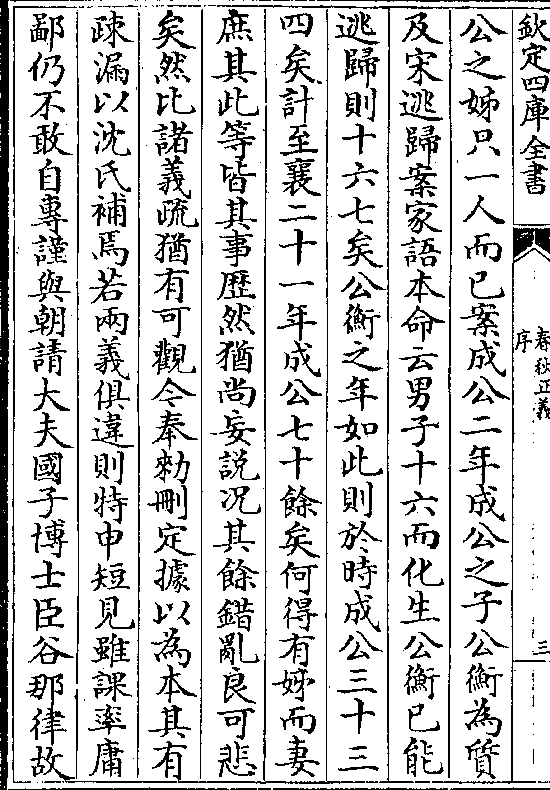 欽定四庫全書
春秋正義
序
三
公之姊只一人而已案成公二年成公之子公衡為質
及宋逃歸案家語本命云男子十六而化生公衡已能
逃歸則十六七矣公衡之年如此則於時成公三十三
四矣計至襄二十一年成公七十餘矣何得有姊而妻
庶其此等皆其事歴然猶尚妄説况其餘錯亂良可悲
矣然比諸義疏猶有可觀今奉勅刪定據以為本其有
疎漏以沈氏補焉若兩義俱違則特申短見雖課率庸
鄙仍不敢自專謹與朝請大夫國子博士臣谷那律故